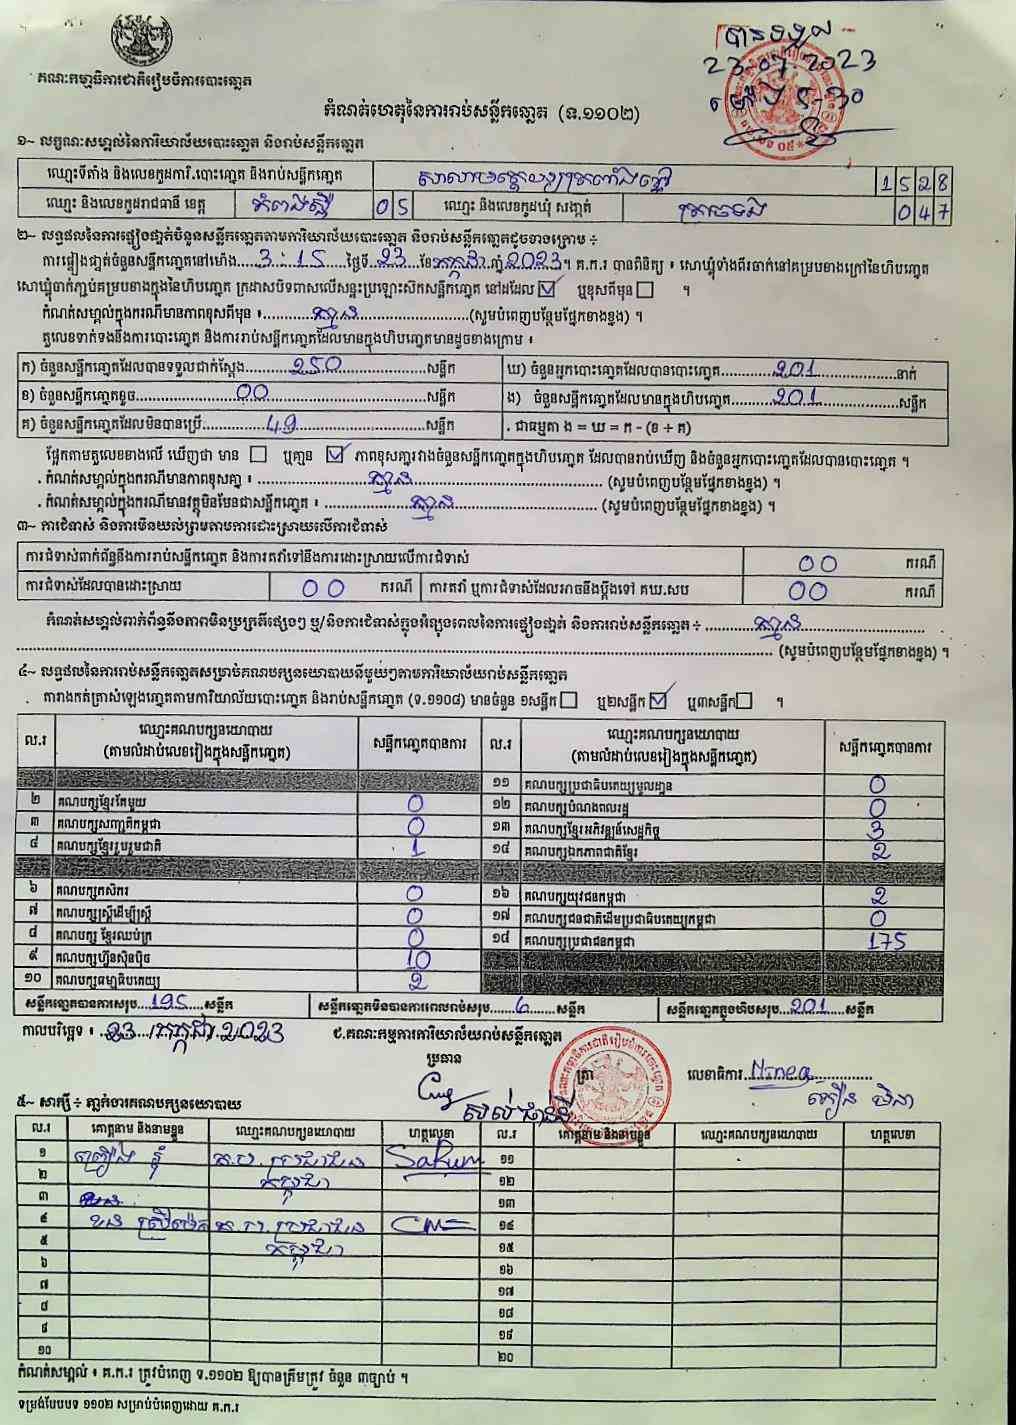 បានទទួល
23-07-2023
ម៉ោង ៩-30
គណៈកម្មាធិការជាតិរៀបចំការបោះឆ្នោត
កំណត់ហេតុនៃការរាប់សន្លឹកឆ្នោត (ទ.១១០២)
១~ លក្ខណៈសម្គាល់នៃការិយាល័យបោះឆ្នោត និងរាប់សន្លឹកឆ្នោត
ឈ្មោះទីតាំង និងលេខកូដការិ.បោះឆ្នោត និងរាប់សន្លឹកឆ្នោត 1528
ឈ្មោះ និងលេខកូដរាជធានី ខេត្ត កំពង់ស្ពឺ 05 ឈ្មោះ និងលេខកូដឃុំ សង្កាត់ 047
២~ លទ្ធផលនៃការផ្ទៀងផ្ទាត់ចំនួនសន្លឹកឆ្នោតតាមការិយាល័យបោះឆ្នោត និងរាប់សន្លឹកឆ្នោតដូចខាងក្រោម ÷
ការផ្ទៀងផ្ទាត់ចំនួនសន្លឹកឆ្នោតនៅម៉ោង....3:15....ថ្ងៃទី..23..ខែ.កក្កដា.ឆ្នាំ.2023។ គ.ក.រ បានពិនិត្យ ៖ សោឃ្លុំទាំងពីរចាក់នៅគម្របខាងក្រៅនៃហិបឆ្នោត
សោឃ្លុំចាក់ភ្ជាប់គម្របខាងក្នុងនៃហិបឆ្នោត ក្រដាសបិទពាសលើសន្ទះប្រឡោះស៊កសន្លឹកឆ្នោត នៅដដែល ☑ ឬខុសពីមុន ☐ ។
កំណត់សម្គាល់ក្នុងករណីមានភាពខុសពីមុន ៖........គ្មាន........(សូមបំពេញបន្ថែមផ្នែកខាងខ្នង) ។
តួលេខទាក់ទងនឹងការបោះឆ្នោត និងការរាប់សន្លឹកឆ្នោតដែលមានក្នុងហិបឆ្នោតមានដូចខាងក្រោម ៖
ក) ចំនួនសន្លឹកឆ្នោតដែលបានទទួលជាក់ស្តែង........250........សន្លឹក ឃ) ចំនួនអ្នកបោះឆ្នោតដែលបានបោះឆ្នោត........201........នាក់
ខ) ចំនួនសន្លឹកឆ្នោតខូច........00........សន្លឹក ង) ចំនួនសន្លឹកឆ្នោតដែលមានក្នុងហិបឆ្នោត........201........សន្លឹក
គ) ចំនួនសន្លឹកឆ្នោតដែលមិនបានប្រើ........49........សន្លឹក . ជាធម្មតា ង = ឃ = ក - (ខ + គ)
ផ្អែកតាមតួលេខខាងលើ ឃើញថា មាន ☐ ឬគ្មាន ☑ ភាពខុសគ្នារវាងចំនួនសន្លឹកឆ្នោតក្នុងហិបឆ្នោត ដែលបានរាប់ឃើញ និងចំនួនអ្នកបោះឆ្នោតដែលបានបោះឆ្នោត ។
. កំណត់សម្គាល់ក្នុងករណីមានភាពខុសគ្នា ៖........គ្មាន........(សូមបំពេញបន្ថែមផ្នែកខាងខ្នង) ។
. កំណត់សម្គាល់ក្នុងករណីមានវត្ថុមិនមែនជាសន្លឹកឆ្នោត ៖........គ្មាន........(សូមបំពេញបន្ថែមផ្នែកខាងខ្នង) ។
៣~ ការជំទាស់ និងការមិនយល់ព្រមតាមការដោះស្រាយលើការជំទាស់
ការជំទាស់ពាក់ព័ន្ធនឹងការរាប់សន្លឹកឆ្នោត និងការតវ៉ាទៅនឹងការដោះស្រាយលើការជំទាស់ 00 ករណី
ការជំទាស់ដែលបានដោះស្រាយ 00 ករណី ការតវ៉ា ឬការជំទាស់ដែលអាចនឹងប្តឹងទៅ គឃ.សប 00 ករណី
កំណត់សម្គាល់ពាក់ព័ន្ធនឹងភាពមិនប្រក្រតីផ្សេងៗ ឬ/និងការជំទាស់ក្នុងអំឡុងពេលនៃការផ្ទៀងផ្ទាត់ និងការរាប់សន្លឹកឆ្នោត ÷........គ្មាន........
(សូមបំពេញបន្ថែមផ្នែកខាងខ្នង) ។
៤~ លទ្ធផលនៃការរាប់សន្លឹកឆ្នោតសម្រាប់គណបក្សនយោបាយនីមួយៗតាមការិយាល័យរាប់សន្លឹកឆ្នោត
តារាងកត់ត្រាសំឡេងឆ្នោតតាមការិយាល័យបោះឆ្នោត និងរាប់សន្លឹកឆ្នោត (ទ.១១០៨) មានចំនួន ១សន្លឹក ☐ ឬ២សន្លឹក ☑ ឬ៣សន្លឹក ☐ ។
ល.រ ឈ្មោះគណបក្សនយោបាយ (តាមលំដាប់លេខរៀងក្នុងសន្លឹកឆ្នោត) សន្លឹកឆ្នោតបានការ ល.រ ឈ្មោះគណបក្សនយោបាយ (តាមលំដាប់លេខរៀងក្នុងសន្លឹកឆ្នោត) សន្លឹកឆ្នោតបានការ
១១ គណបក្សប្រជាធិបតេយ្យមូលដ្ឋាន 0
២ គណបក្សខ្មែរតែមួយ 0 ១២ គណបក្សបំណងពលរដ្ឋ 0
៣ គណបក្សសញ្ជាតិកម្ពុជា 0 ១៣ គណបក្សខ្មែរអភិវឌ្ឍន៍សេដ្ឋកិច្ច 3
៤ គណបក្សខ្មែររួបរួមជាតិ 1 ១៤ គណបក្សឯកភាពជាតិខ្មែរ 2
៦ គណបក្សកសិករ 0 ១៦ គណបក្សយុវជនកម្ពុជា 2
៧ គណបក្សស្ត្រីដើម្បីស្ត្រី 0 ១៧ គណបក្សជនជាតិដើមប្រជាធិបតេយ្យកម្ពុជា 0
៨ គណបក្ស ខ្មែរឈប់ក្រ 0 ១៨ គណបក្សប្រជាជនកម្ពុជា 175
៩ គណបក្សហ៊្វុនស៊ិនប៉ិច 10
១០ គណបក្សធម្មាធិបតេយ្យ 2
សន្លឹកឆ្នោតបានការសរុប...195...សន្លឹក សន្លឹកឆ្នោតមិនបានការពេលរាប់សរុប...6...សន្លឹក សន្លឹកឆ្នោតក្នុងហិបសរុប...201...សន្លឹក
កាលបរិច្ឆេទ ៖ 23 / កក្កដា / 2023 ជ.គណៈកម្មការការិយាល័យរាប់សន្លឹកឆ្នោត
ប្រធាន ត្រា លេខាធិការ
៥~ សាក្សី ÷ ភ្នាក់ងារគណបក្សនយោបាយ
ល.រ គោត្តនាម និងនាមខ្លួន ឈ្មោះគណបក្សនយោបាយ ហត្ថលេខា ល.រ គោត្តនាម និងនាមខ្លួន ឈ្មោះគណបក្សនយោបាយ ហត្ថលេខា
១ គ.ប.ប្រជាជន ១១
២ កម្ពុជា ១២
៣ ១៣
៤ គ.ប.ប្រជាជន ១៤
៥ កម្ពុជា ១៥
៦ ១៦
៧ ១៧
៨ ១៨
៩ ១៩
១០ ២០
កំណត់សម្គាល់ ៖ គ.ក.រ ត្រូវបំពេញ ទ.១១០២ ឱ្យបានត្រឹមត្រូវ ចំនួន ៣ច្បាប់ ។
ទម្រង់បែបបទ ១១០២ សម្រាប់បំពេញដោយ គ.ក.រ